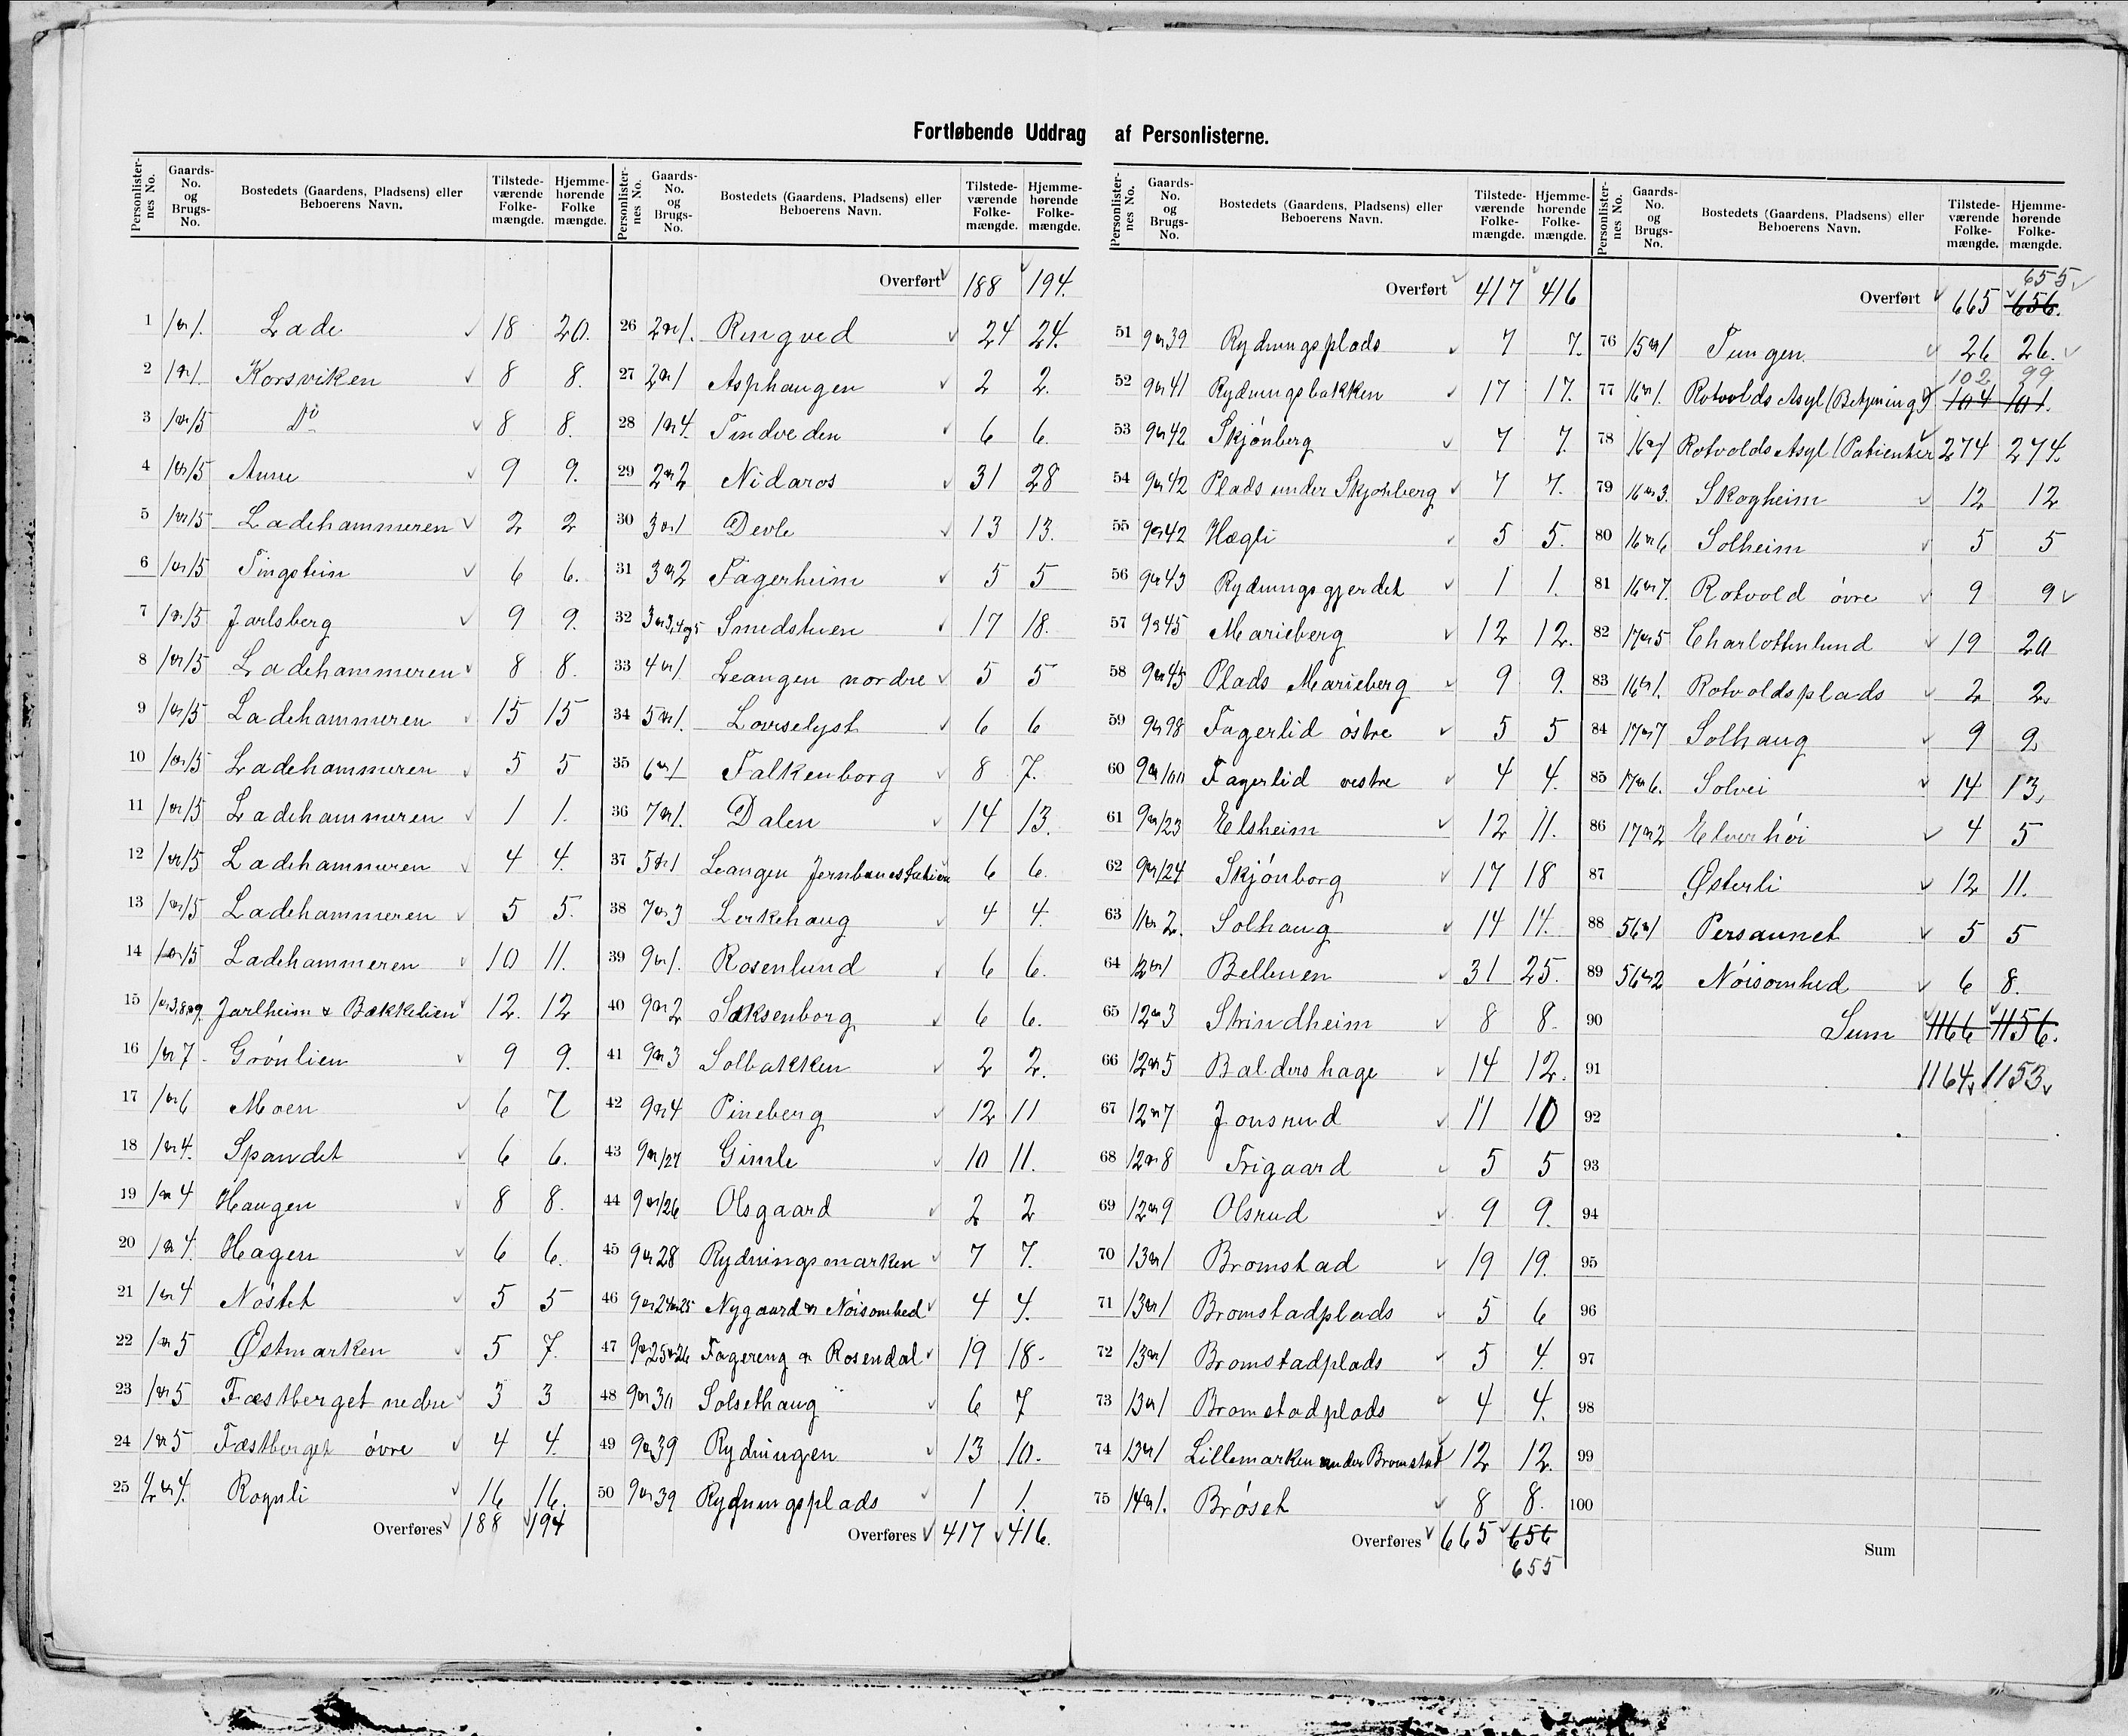 Fortløbende Uddrag af Personlisterne.
Personlisternes No. Gaards-No. og Brugs-No. Bostedets (Gaardens, Pladsens) eller Beboerens Navn. Tilstedeværende Folkemængde. Hjemmehørende Folkemængde.
1 1 1. Lade 18 20.
2 1 1. Korsviken 8 8.
3 1 15 Do 8 8.
4 1 15 Aune 9 9.
5 1 15 Ladehammeren 2 2
6 1 15 Tingstein 6 6.
7 1 15 Jarlsberg 9 9.
8 1 15 Ladehammeren 8 8.
9 1 15 Ladehammeren 15 15
10 1 15 Ladehammeren 5 5
11 1 15 Ladehammeren 1 1.
12 1 15 Ladehammeren 4 4.
13 1 15 Ladehammeren 5 5.
14 1 15 Ladehammeren 10 11.
15 1 3,8 9. Jarlheim & Bakkelien 12. 12
16 1 7 Grønlien 9 9.
17 1 6 Moen 6 7
18 1 4. Spandet 6 6.
19 1 4 Haugen 8 8.
20 1 4. Hagen 6 6.
21 1 4 Nøstet 5 5
22 1 5 Østmarken 5 7.
23 1 5 Fæstberget nedre 3 3
24 1 5 Fæstberget øvre 4 4.
25 4. Rognli 16 16.
Overføres 188 194
Overført 188 194.
26 2 1. Ringved 24 24.
27 2 1 Asphaugen 2 2.
28 1 4. Tindveden 6 6.
29 2 2 Nidaros 31 28
30 3 1 Devle 13 13.
31 3 2 Fagerheim 5 5
32 3 3,4 og 5 Smedstuen 17 18.
33 4 1 Leangen nordre 5 5
34 5 1. Lovselyst 6 6
35 6 1 Falkenborg 8 7.
36 7 1. Dalen 14 13.
37 5 1 Leangen Jernbanestation 6 6.
38 7 3 Lerkehaug 4 4.
39 9 1. Rosenlund 6 6.
40 9 2 Saksenborg 6 6.
41 9 3 Solbakken 2 2.
42 9 4 Pineberg 12 11
43 9 27 Gimle 10 11.
44 9 26 Olsgaard 2 2
45 9 28 Rydningsmarken 7 7.
46 9 24 25 Nygaard & Nøisomhed 4 4.
47 9 25 26 Fagereng & Rosendal 19 18.
48 9 30 Solsethaug 6 7
49 9 39 Rydningen 13 10.
50 9 39 Rydningsplads 1 1.
Overføres 417 416.
Overført 417 416
51 9 39 Rydningsplads 7 7.
52 9 41 Rydningsbakken 17 17.
53 9 42 Skjønberg 7 7.
54 9 42 Plads under Skjønberg 7 7.
55 9 42 Hægli 5 5.
56 9 43 Rydningsgjerdet 1 1.
57 9 45 Marieberg 12 12.
58 9 45 Plads Marieberg 9 9.
59 9 98 Fagerlid østre 5 5
60 9 100 Fagerlid vestre 4 4.
61 9 123 Elsheim 12 11.
62 9 124 Skjønborg 17 18
63 11 2. Solhaug 14 14.
64 12 1 Belbuen 31 25.
65 12 3 Strindheim 8 8.
66 12 5 Baldershage 14 12.
67 12 7 Jonsrud 11 10
68 12 8 Trigaard 5 5
69 12 9 Olsrud 9 9.
70 13 1 Bromstad 19 19.
71 13 1 Bromstadplads 5 6
72 13 1 Bromstadplads 5 4.
73 13 1 Bromstadplads 4 4.
74 13 1 Lillemarken under Bromstad 12 12.
75 14 1. Brøset 8 8.
Overføres 665 656
655
655
Overført 665 656.
76 15 1 Tungen 26 26.
102 99
77 16 1. Rotvolds Asyl (Betjening) 104 101.
78 16 1 Rotvolds Asyl (Patienter 274 274.
79 16 3. Skogheim 12 12
80 16 6 Solheim 5 5
81 16 7. Rotvold øvre 9 9
82 17 5 Charlottenlund 19 20
83 16 1. Rotvoldsplads 2 2.
84 17 7 Solhaug 9 9
85 17 6. Solvei 14 13.
86 17 2 Elverhøi 4 5
87 Østerli 12 11.
88 56 1 Persaunet 5 5
89 56 2 Nøisomhed 6 8.
90 Sum 1166 1156.
91 1164 1153
92
93
94
95
96
97
98
99
100
Sum